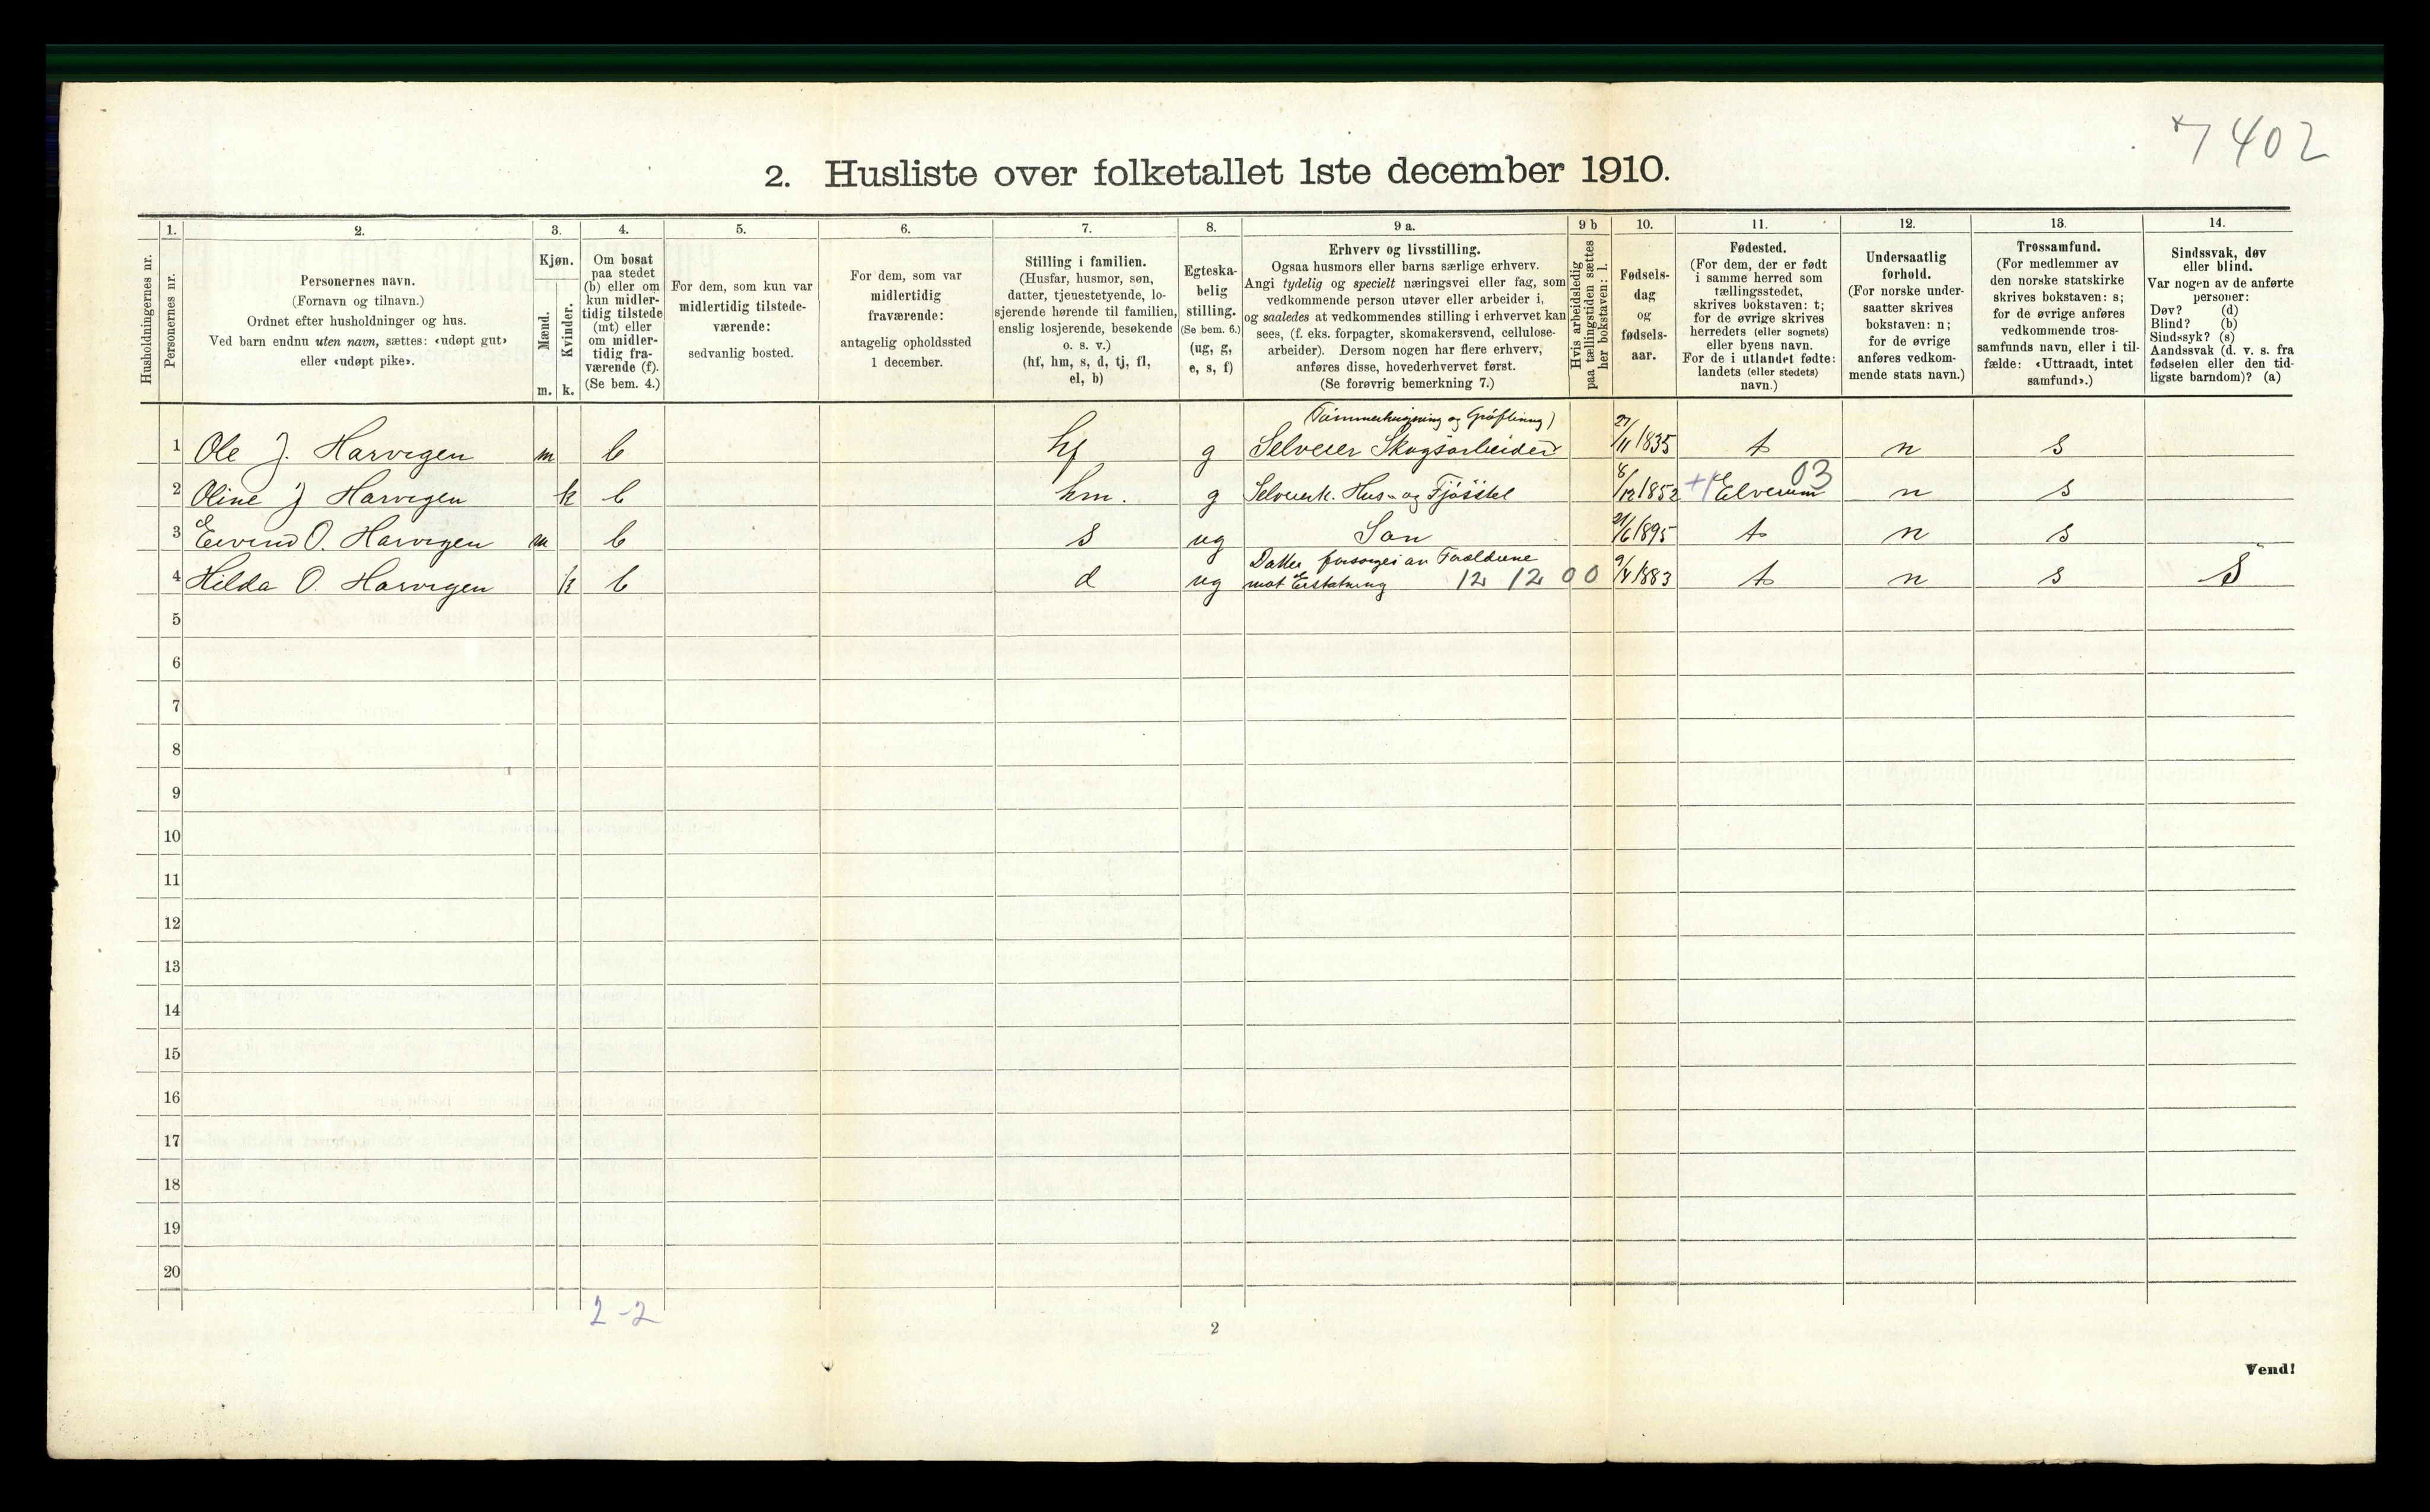 7402
2. Husliste over folketallet 1ste december 1910.
Husholdningernes nr.
1.
Personernes nr.
2.
Personernes navn.
(Fornavn og tilnavn.)
Ordnet efter husholdninger og hus.
Ved barn endnu uten navn, sættes: «udøpt gut»
eller «udøpt pike».
3.
Kjøn.
Mænd.
Kvinder.
m. k.
4.
Om bosat
paa stedet
(b) eller om
kun midler-
tidig tilstede
(mt) eller
om midler-
tidig fra-
værende (f).
(Se bem. 4.)
5.
For dem, som kun var
midlertidig tilstede-
værende:
sedvanlig bosted.
6.
For dem, som var
midlertidig
fraværende:
antagelig opholdssted
1 december.
7.
Stilling i familien.
(Husfar, husmor, søn,
datter, tjenestetyende, lo-
sjerende hørende til familien,
enslig losjerende, besøkende
o. s. v.)
(hf, hm, s, d, tj, fl,
el, b)
8.
Egteska-
belig
stilling.
(Se bem. 6.)
(ug, g,
e, s, f)
9 a.
Erhverv og livsstilling.
Ogsaa husmors eller barns særlige erhverv.
Angi tydelig og specielt næringsvei eller fag, som
vedkommende person utøver eller arbeider i,
og saaledes at vedkommendes stilling i erhvervet kan
sees, (f. eks. forpagter, skomakersvend, cellulose-
arbeider). Dersom nogen har flere erhverv,
anføres disse, hovederhvervet først.
(Se forøvrig bemerkning 7.)
9 b
Hvis arbeidsledig
paa tællingstiden sættes
her bokstaven: l.
10.
Fødsels-
dag
og
fødsels-
aar.
11.
Fødested.
(For dem, der er født
i samme herred som
tællingsstedet,
skrives bokstaven: t;
for de øvrige skrives
herredets (eller sognets)
eller byens navn.
For de i utlandet fødte:
landets (eller stedets)
navn.)
12.
Undersaatlig
forhold.
(For norske under-
saatter skrives
bokstaven: n;
for de øvrige
anføres vedkom-
mende stats navn.)
13.
Trossamfund.
(For medlemmer av
den norske statskirke
skrives bokstaven: s;
for de øvrige anføres
vedkommende tros-
samfunds navn, eller i til-
fælde: «Uttraadt, intet
samfund».)
14.
Sindssvak, døv
eller blind.
Var nogen av de anførte
personer:
Døv? (d)
Blind? (b)
Sindssyk? (s)
Aandssvak (d. v. s. fra
fødselen eller den tid-
ligste barndom)? (a)
1 Ole J. Harvegen m b hf g Selveier Skogsarbeider 27/11 1835 t n s
2 Oline J Harvegen k b hm. g Selveierk. Hus- og Fjøsstel 8/12 1852 Elverum 03 n s
3 Eivind O. Harvegen m b s ug Søn 21/6 1895 t n s
4 Hilda O. Harvegen k b d ug Datter forsørges av Forældrene
mot Erstatning 12 12 00 9/4 1883 t n s S
5
6
7
8
9
10
11
12
13
14
15
16
17
18
19
20
2-2
2
Vend!